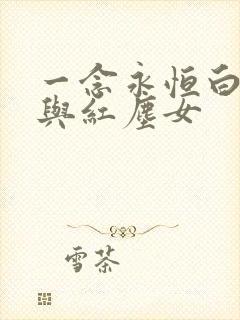 一念永恒白
與紅塵女
雪茶